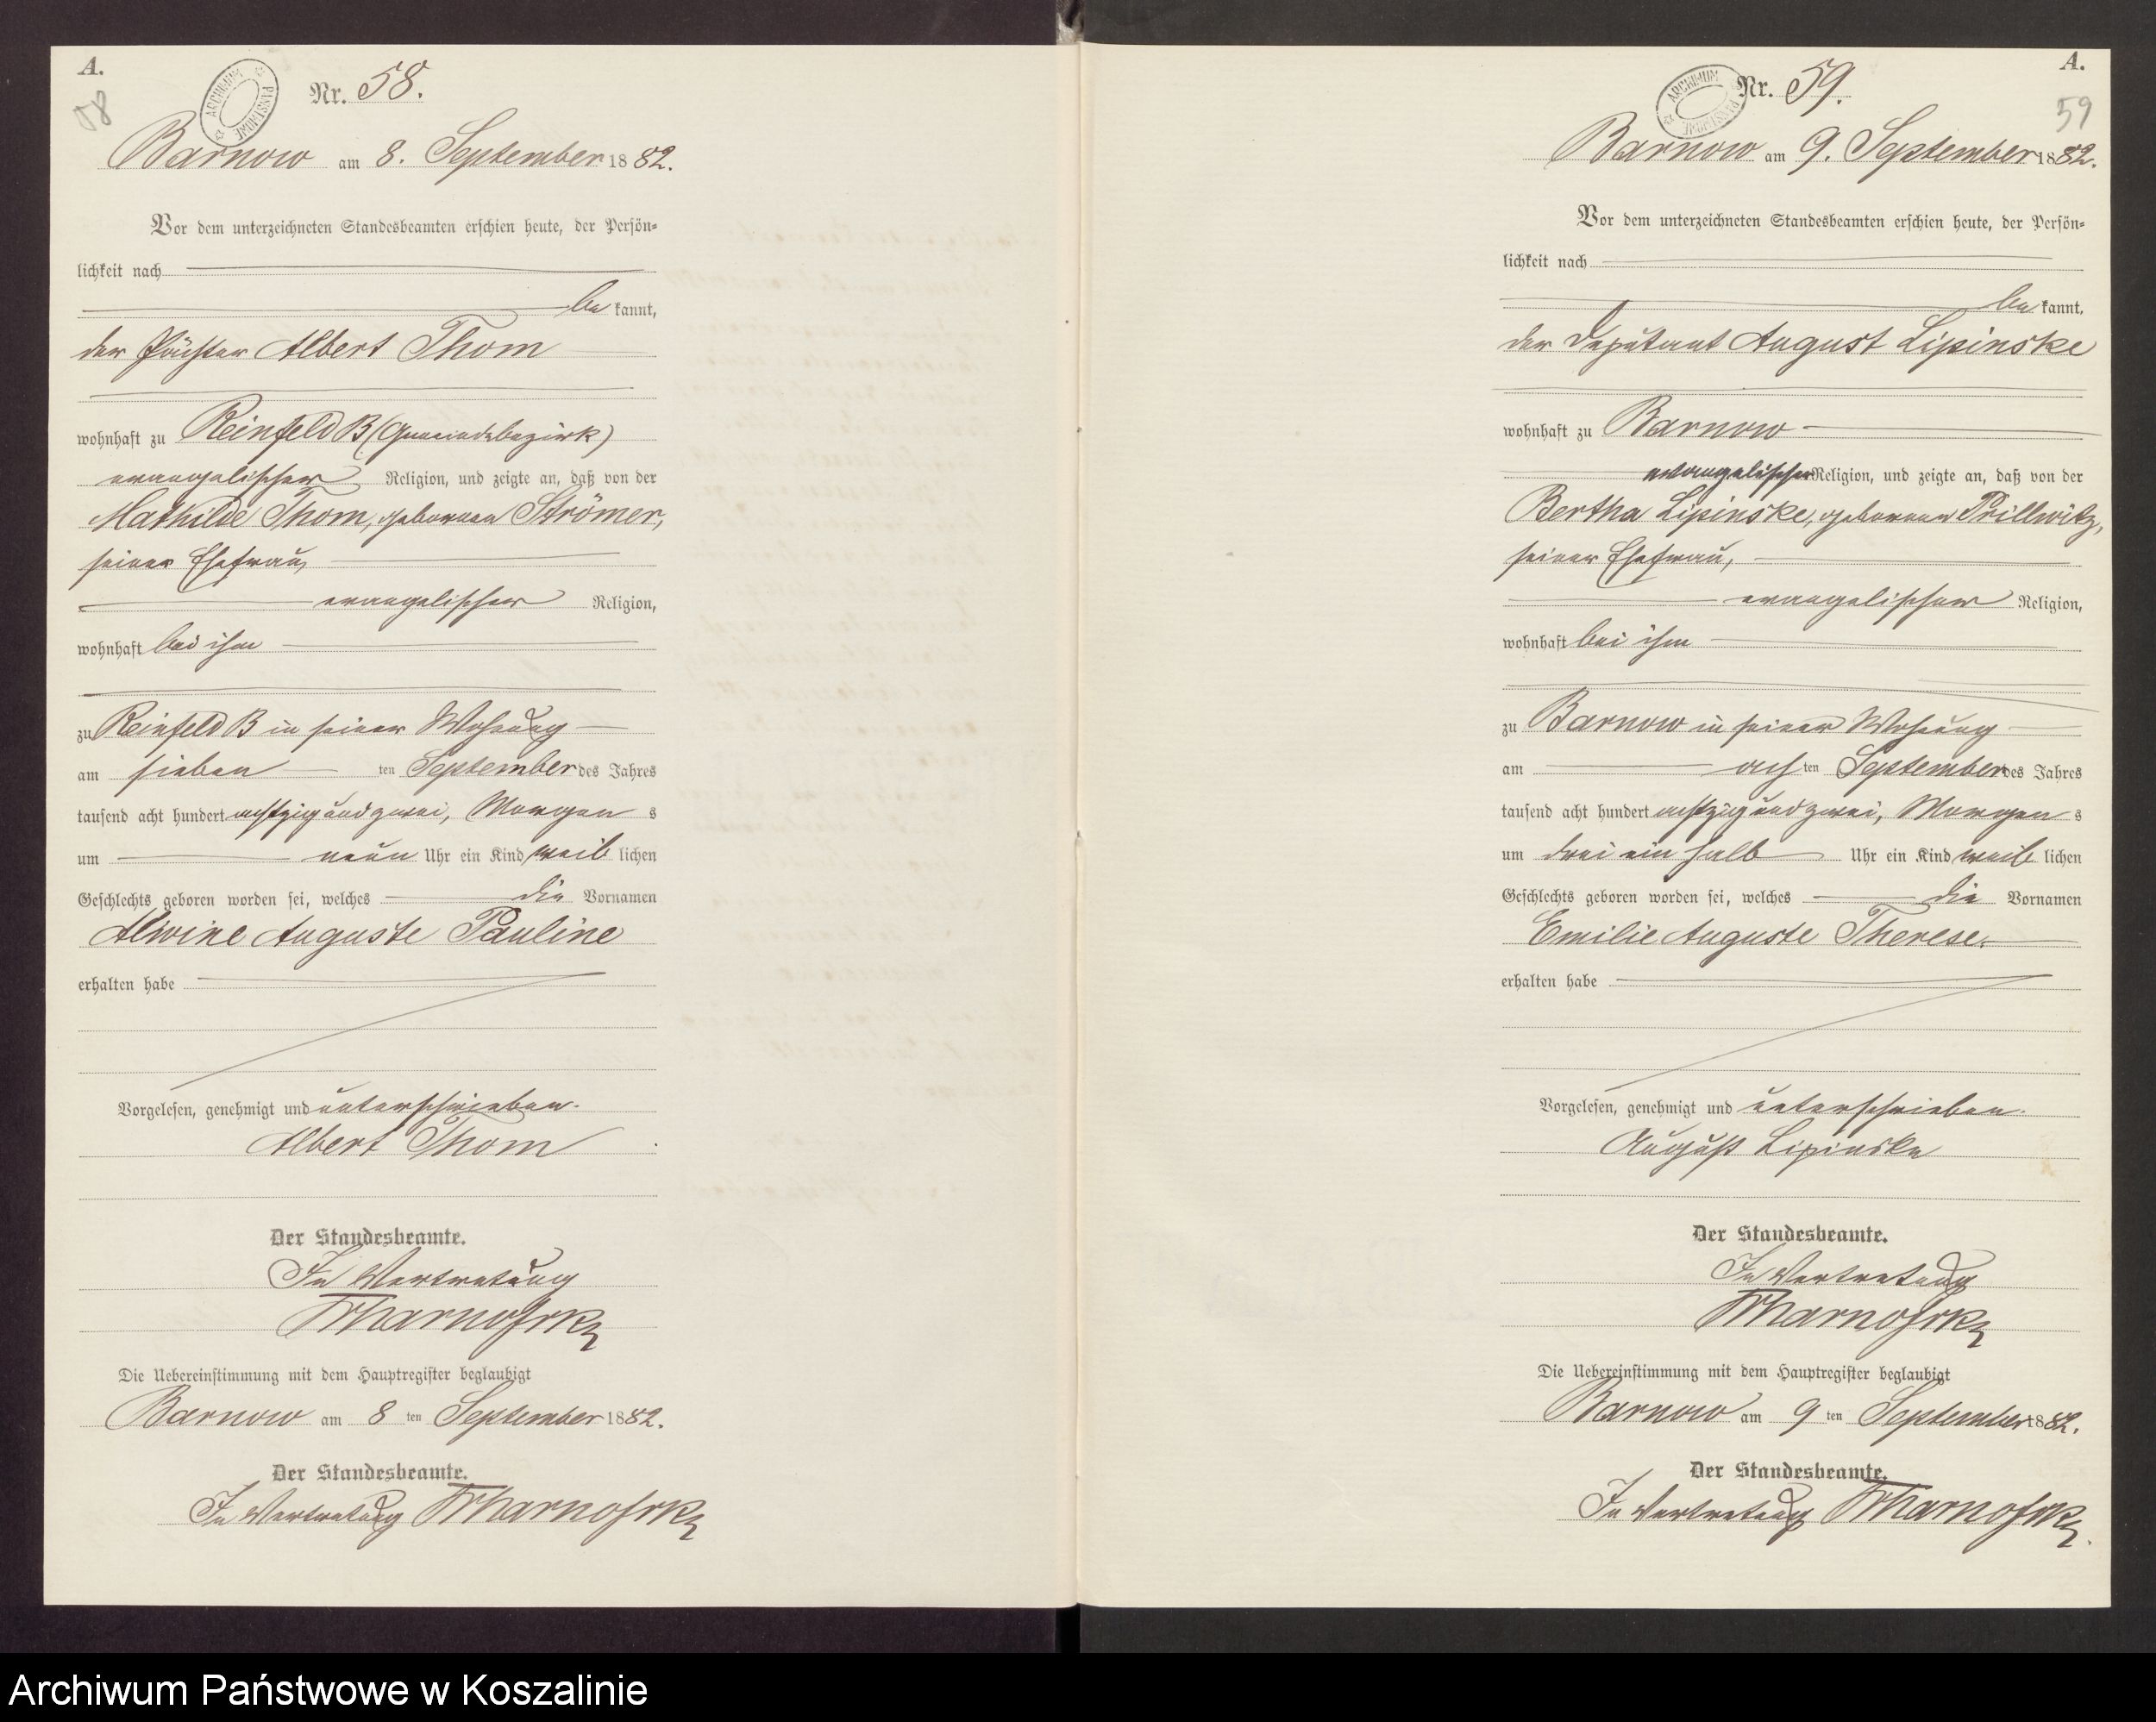 A.
58
ARCHIWUM PAŃSTWOWE
Nr. 58.
Barnow am 8. September 1882.
Vor dem unterzeichneten Standesbeamten erschien heute, der Persön-
lichkeit nach
be kannt,
der Pächter Albert Thom
wohnhaft zu Reinfeld B (Gemeindebezirk)
evangelischer Religion, und zeigte an, daß von der
Mathilde Thom, geborenen Strömer,
seiner Ehefrau,
evangelischer Religion,
wohnhaft bei ihm
zu Reinfeld B in seiner Wohnung
am sieben ten September des Jahres
tausend acht hundert achtzig und zwei, Morgen s
um neun Uhr ein Kind weib lichen
Geschlechts geboren worden sei, welches die Vornamen
Alwine Auguste Pauline
erhalten habe
Vorgelesen, genehmigt und unterschrieben.
Albert Thom
Der Standesbeamte.
In Vertretung
Die Uebereinstimmung mit dem Hauptregister beglaubigt
Barnow am 8 ten September 1882.
Der Standesbeamte.
In Vertretung
A.
59
ARCHIWUM PAŃSTWOWE
Nr. 59.
Barnow am 9. September 1882.
Vor dem unterzeichneten Standesbeamten erschien heute, der Persön-
lichkeit nach
be kannt,
der Deputant August Lipinske
wohnhaft zu Barnow
evangelischer Religion, und zeigte an, daß von der
Bertha Lipinske, geborenen Prillwitz,
seiner Ehefrau,
evangelischer Religion,
wohnhaft bei ihm
zu Barnow in seiner Wohnung
am ach ten September des Jahres
tausend acht hundert achtzig und zwei, Morgen s
um drei ein halb Uhr ein Kind weib lichen
Geschlechts geboren worden sei, welches die Vornamen
Emilie Auguste Therese.
erhalten habe
Vorgelesen, genehmigt und unterschrieben.
August Lipinske
Der Standesbeamte.
In Vertretung
Die Uebereinstimmung mit dem Hauptregister beglaubigt
Barnow am 9 ten September 1882.
Der Standesbeamte.
In Vertretung
Archiwum Państwowe w Koszalinie